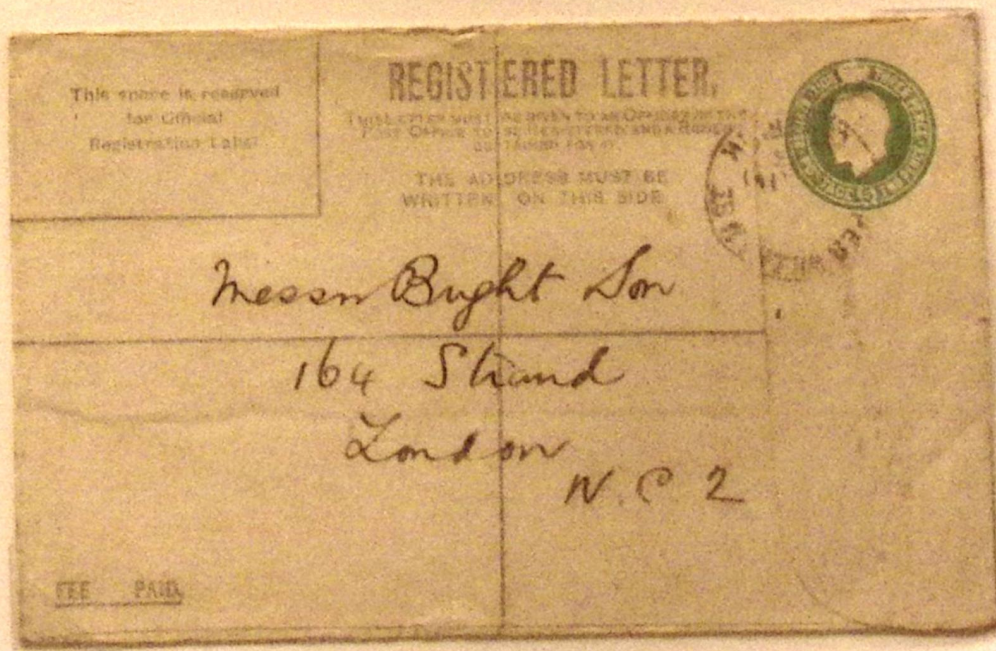 This space is reserved
for Official
Registration Label
REGISTERED LETTER.
THIS LETTER MUST BE GIVEN TO AN OFFICER OF THE
POST OFFICE TO BE REGISTERED AND A RECEIPT
OBTAINED FOR IT.
THE ADDRESS MUST BE
WRITTEN ON THIS SIDE
Messrs Bright Son
164 Strand
London
W.C 2
FEE PAID.